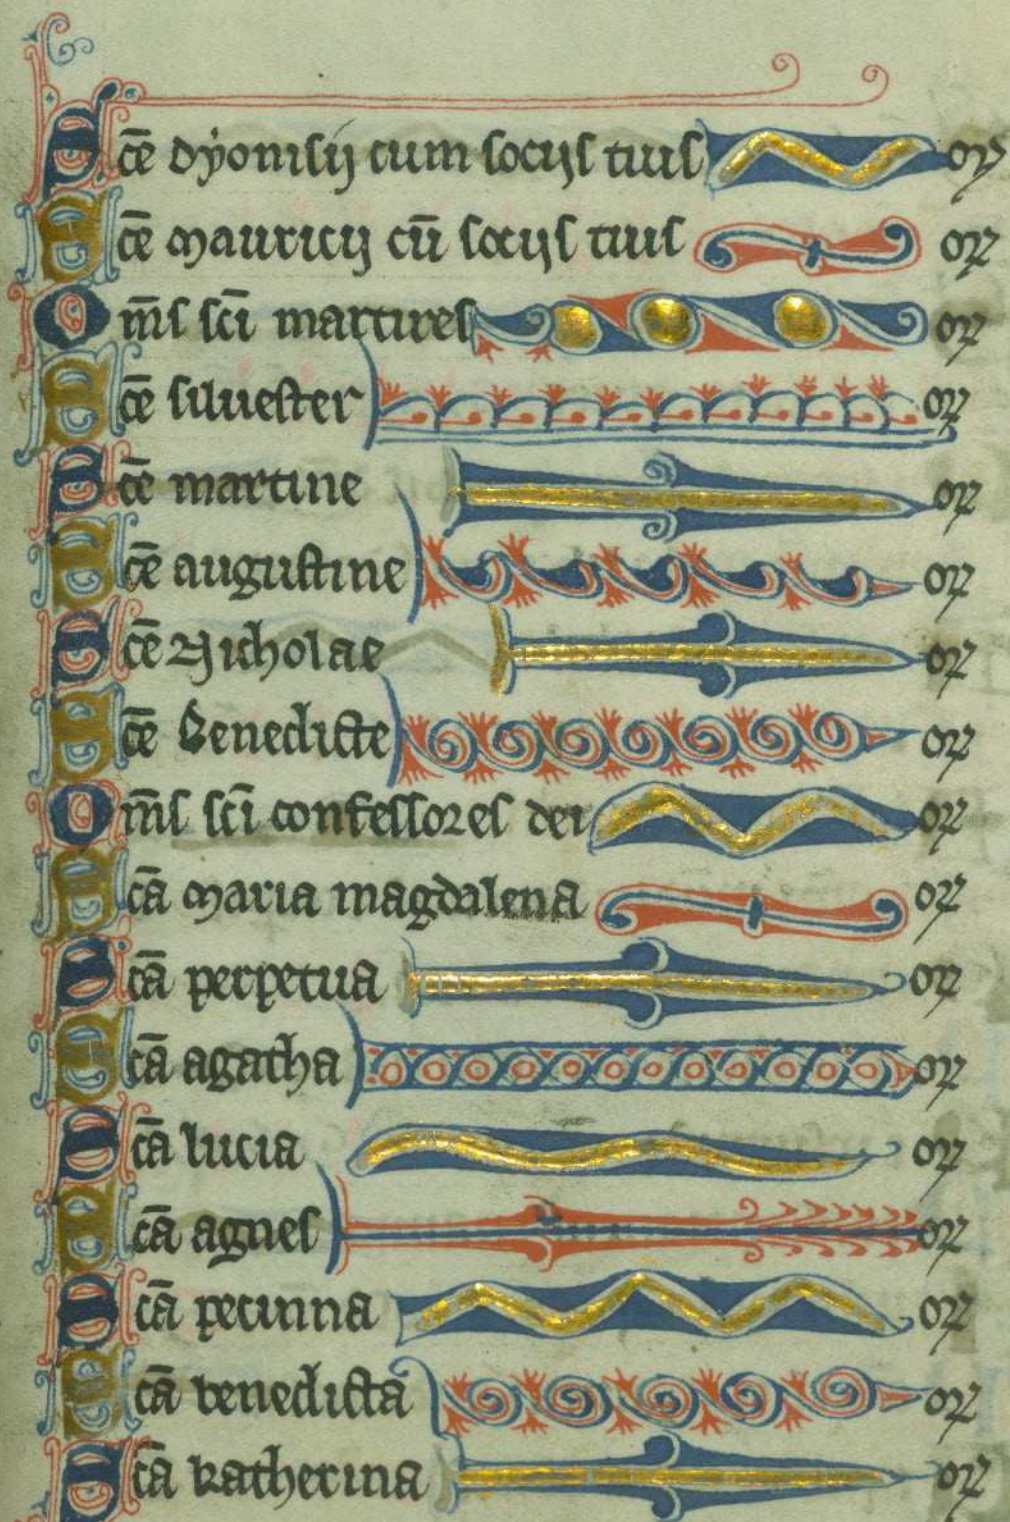 Scē dyonisij cum socijs tuis orꝫ
Scē mauricij cū socijs tuis orꝫ
Om̄s scī martires orꝫ
Scē siluester orꝫ
Scē martine orꝫ
Scē augustine orꝫ
Scē Nicholae orꝫ
Scē Benedicte orꝫ
Om̄s scī confessores dei orꝫ
Scā maria magdalena orꝫ
Scā perpetua orꝫ
Scā agatha orꝫ
Scā lucia orꝫ
Scā agnes orꝫ
Scā pecinna orꝫ
Scā benedicta orꝫ
Scā katherina orꝫ